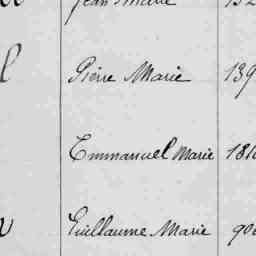 Jean Marie
Pierre Marie 139
Emmanuel Marie 181
Guillaume Marie 90